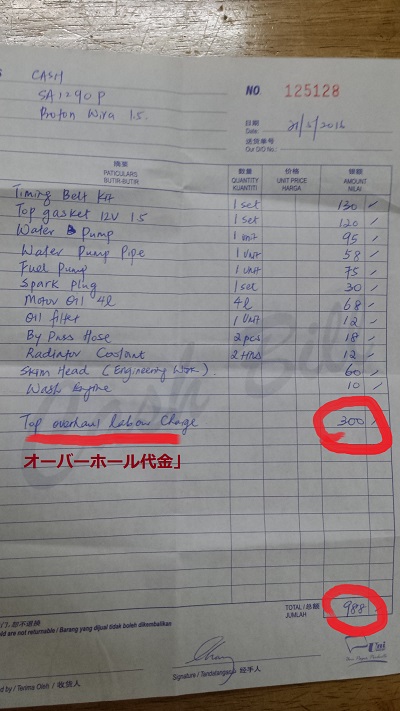 CASH
NO. 125128
SA 1290 P
Proton Wira 1.5.
日期
Date: 21/5/2016
送货单号
Our D/O No.:
摘要 数量 价格 银额
PATICULARS QUANTITY UNIT PRICE AMOUNT
BUTIR-BUTIR KUANTITI HARGA NILAI
Timing Belt Kit 1 set 130
Top gasket 12V 1.5 1 set 120
Water Pump 1 unit 95
Water Pump Pipe 1 unit 58
Fuel Pump 1 unit 75
Spark Plug 1 set 30
Motor Oil 4l 4l 68
Oil filter 1 unit 12
By Pass Hose 2 pcs 18
Radiator Coolant 12
Skim Head (Engineering Work). 60
Wash Engine 10
Cash Bill
Top overhaul labour Charge 300
オーバーホール代金」
TOTAL / 总额 988
JUMLAH
old are not returnable / Barang yang dijual tidak boleh dikembalikan
Signature / Tandatangan 经手人
ed by / Terima Oleh / 收货人